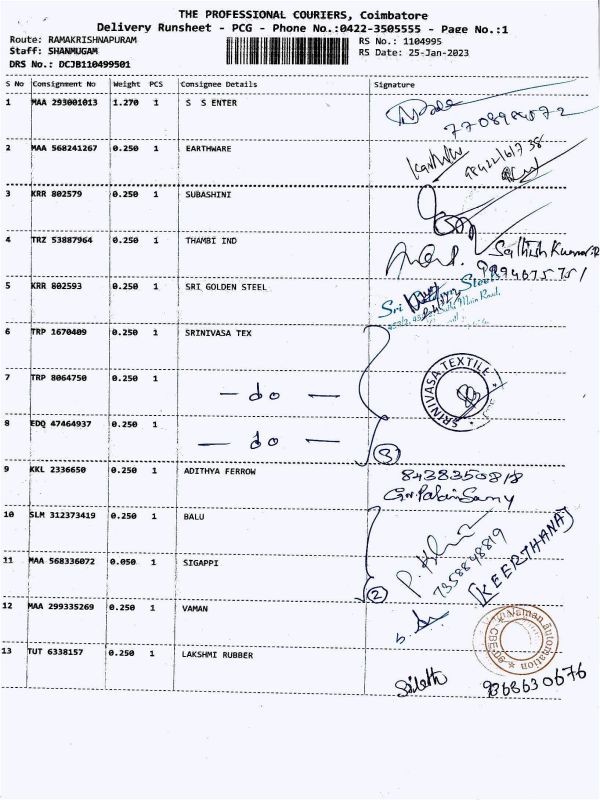 THE PROFESSIONAL COURIERS, Coimbatore
Delivery Runsheet - PCG - Phone No.:0422-3505555 - Page No.:1
Route: RAMAKRISHNAPURAM
Staff: SHANMUGAM
DRS No.: DCJB110499501
RS No.: 1104995
RS Date: 25-Jan-2023
S No Consignment No Weight PCS Consignee Details Signature
1 MAA 293001013 1.270 1 S S ENTER
2 MAA 568241267 0.250 1 EARTHWARE
3 KRR 802579 0.250 1 SUBASHINI
4 TRZ 53887964 0.250 1 THAMBI IND Sathish Kumar.R
9894675751
5 KRR 802593 0.250 1 SRI GOLDEN STEEL Sri Steel
Main Road,
6 TRP 1670409 0.250 1 SRINIVASA TEX
SRINIVASA TEXTILE
7 TRP 8064750 0.250 1 — do —
8 EDQ 47464937 0.250 1 — do — 3
9 KKL 2336650 0.250 1 ADITHYA FERROW 8438350818
10 SLM 312373419 0.250 1 BALU
7358848819
[KEERTHANA]
11 MAA 568336072 0.050 1 SIGAPPI 2
12 MAA 299335269 0.250 1 VAMAN
Vaman automation
CBE
13 TUT 6338157 0.250 1 LAKSHMI RUBBER
9368630676